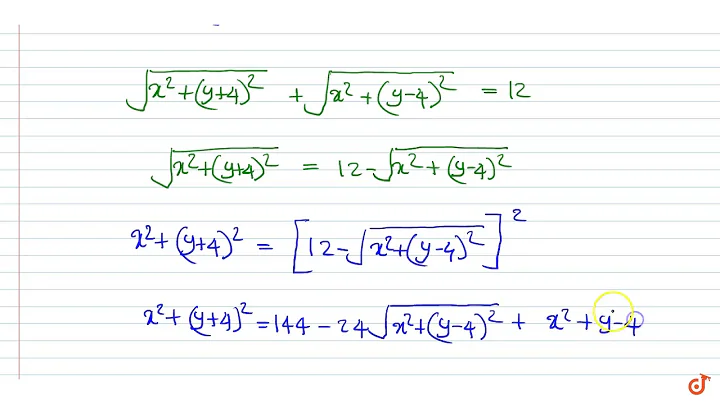 √(x²+(y+4)²) + √(x²+(y-4)²) = 12
√(x²+(y+4)²) = 12-√(x²+(y-4)²)
x²+(y+4)² = [12-√(x²+(y-4)²)]²
x²+(y+4)² = 144-24√(x²+(y-4)²) + x²+y-4